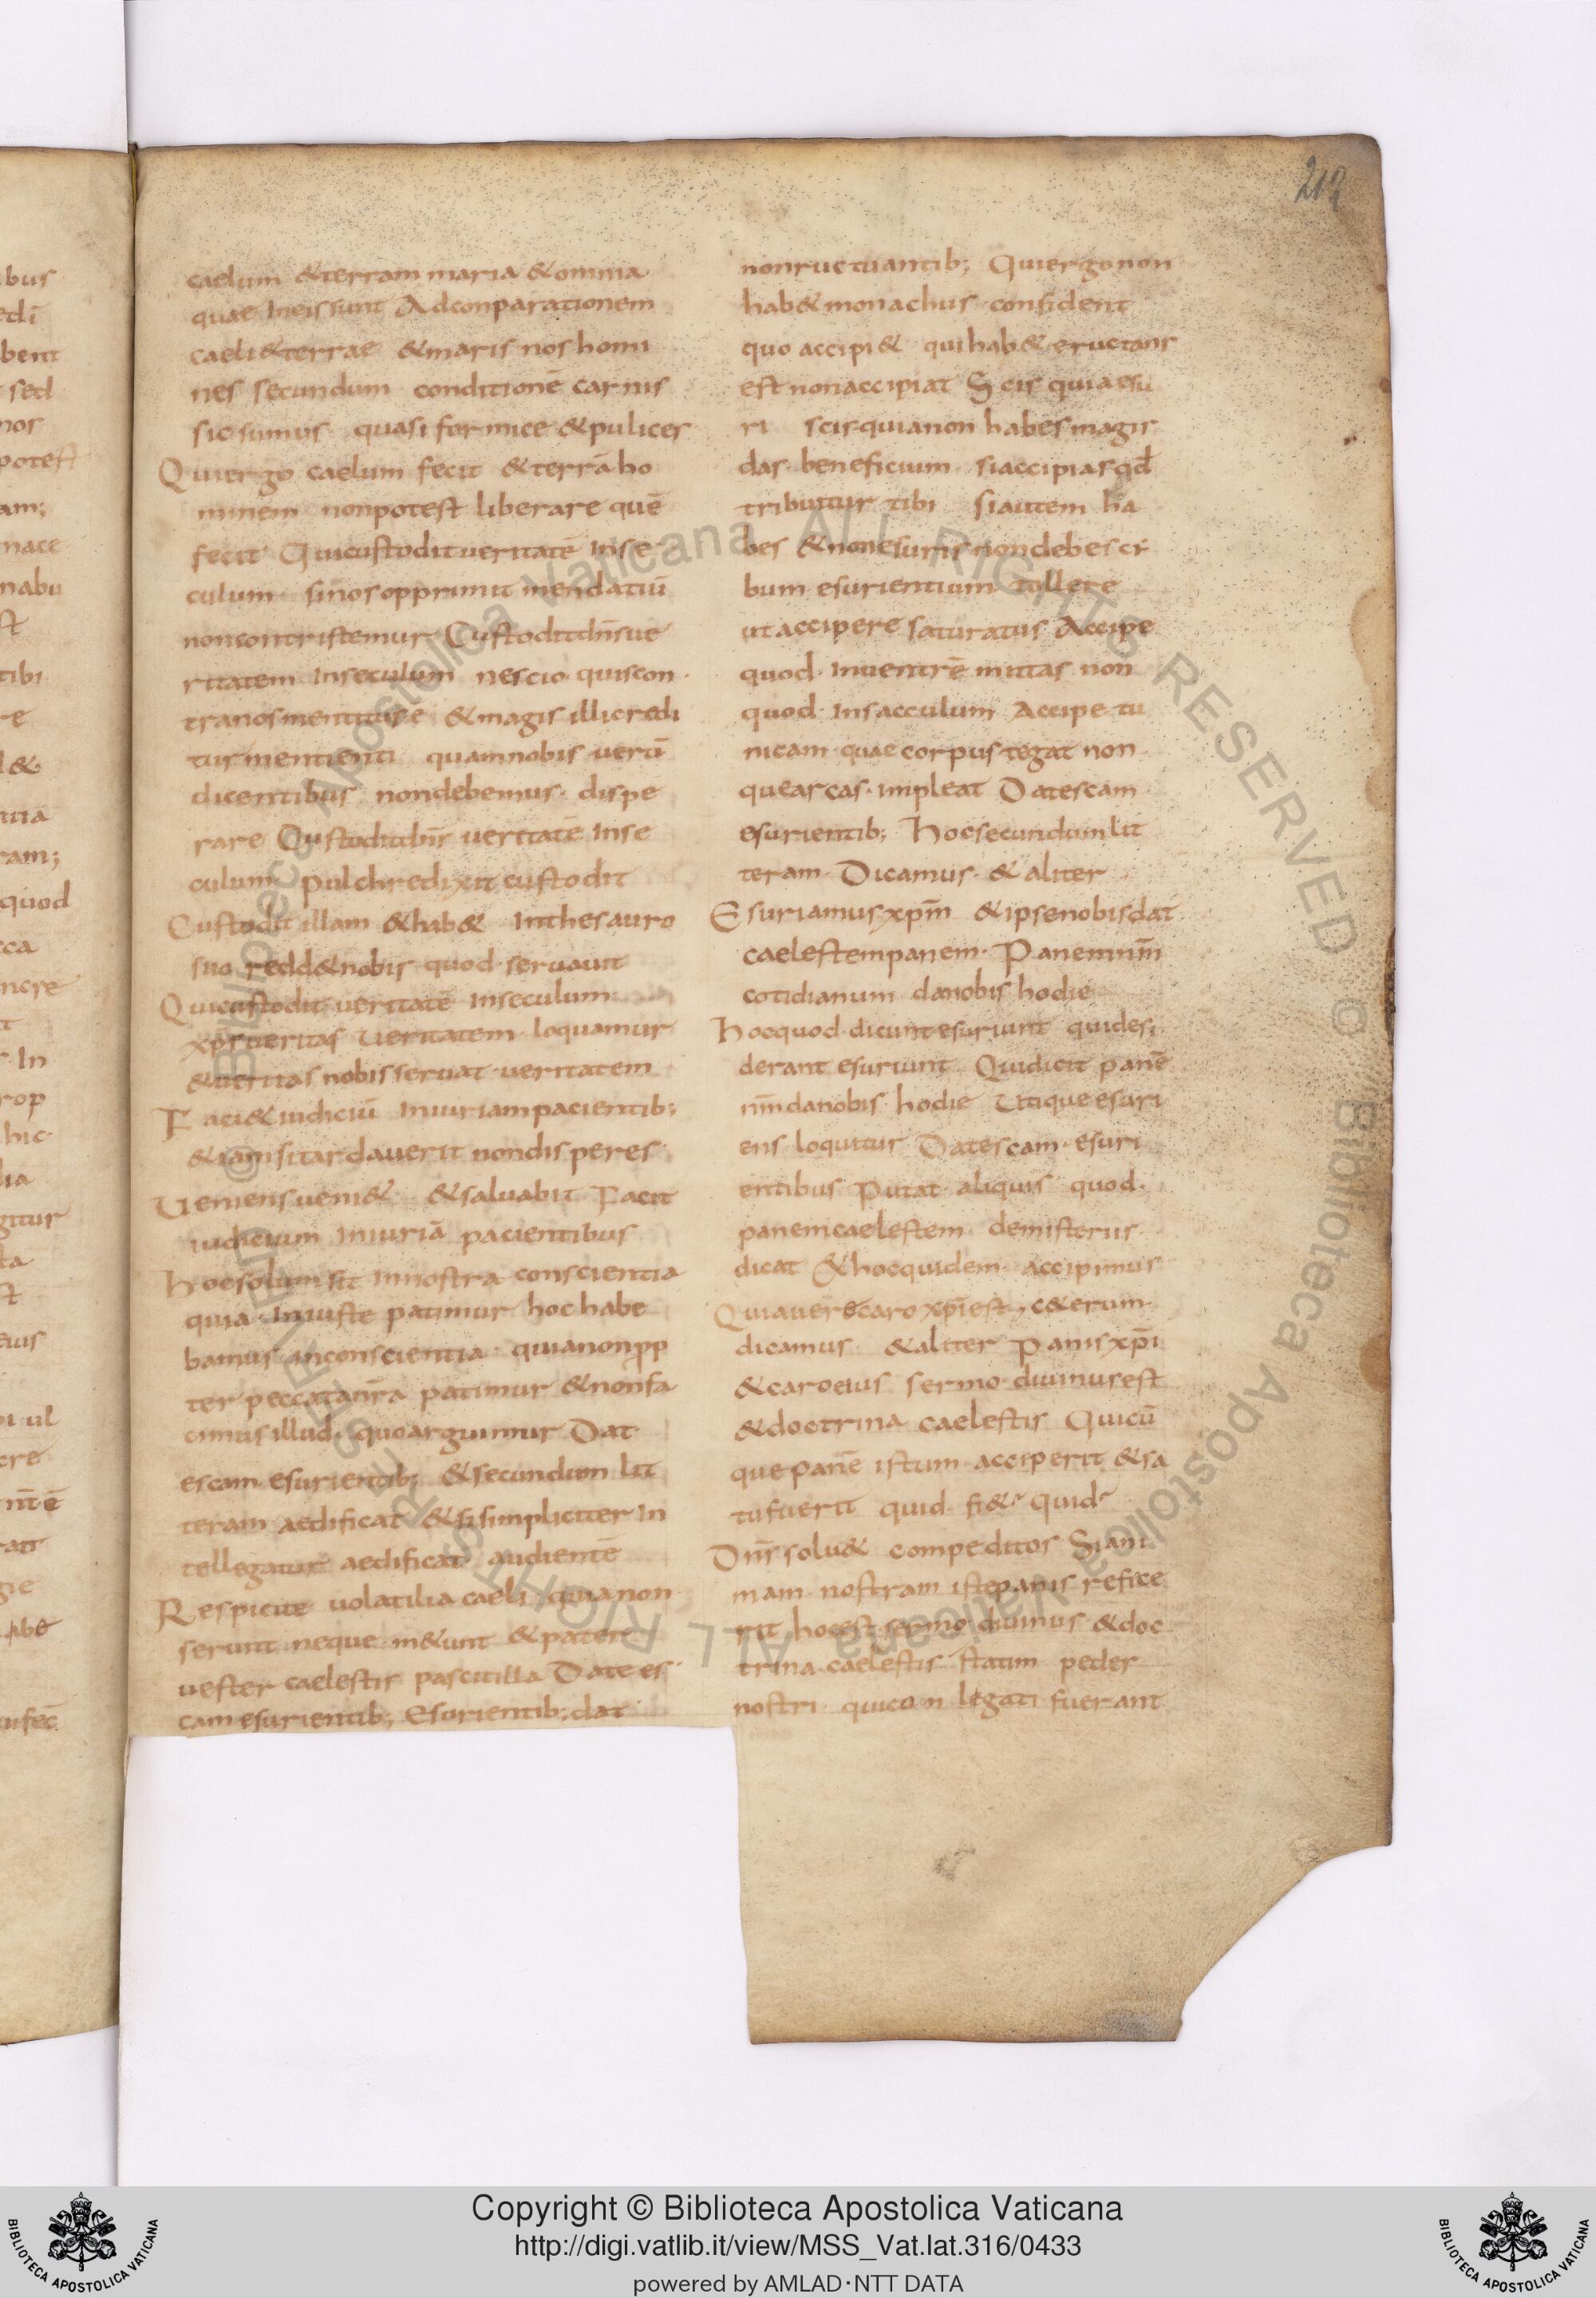 212
caelum &terram maria &omnia
quae ineis sunt Adconparationem
caeli&terrae &maris nos homi
nes secundum conditionē carnis
sic sumus quasi formice &pulices
Quiergo caelum fecit &terrā ho
minem nonpotest liberare quē
fecit Quicustodit veritatē inse
culum sinos opprimit mendatiū
noncontristemur Custoditdn̄sue
ritatem inseculum nescio quiscon
tranosmentitur & &magis illicredi
turmentienti quamnobis verū
dicentibus nondebemus dispe
rare Custoditdn̄s veritatē inse
culum pulchredixit custodit
Custodit illam &hab& inthesauro
suo redd&nobis quod servavit
Quicustodit veritatē inseculum
xp̄s veritas veritatem loquamur
&veritas nobis servat veritatem
Faci&iudiciū iniuriampacientib;
&iamsitardaverit nondisperes
Veniensveni& &salvabit Facit
iudicium iniuriā pacientibus
Hocsolum sit innostra conscientia
quia iniuste patimur hoc habe
bamus inconscientia quianonpp
ter peccatanr̄a patimur &nonfa
cimusillud quoarguimur Dat
escam esurientib; &secundum lit
teram aedificat &sisimpliciter in
tellegatur aedificat audientē
Respicite volatilia caeli quia non
serunt neque m&unt &pater
vester caelestis pascitilla Date es
cam esurientib; Esurientib; dat
nonructuantib; Quiergonon
hab&monachus confident
quo accipi& quihab& eructans
est nonaccipiat Scis quiaesu
ri scisquianon habesmagis
das beneficium siaccipias qđ
tribuitur tibi siautem ha
bes &nonesuris nondebes ci
bum esurientium tollere
ut accipere saturatus Accipe
quod inventrē mittas non
quod insacculum Accipe tu
nicam quae corpus tegat non
quearcas impleat Datescam
esurientib; Hocsecundumlit
teram Dicamus &aliter
Esuriamusxpm̄ &ipsenobisdat
caelestempanem Panemnm̄
cotidianum danobis hodie
Hocquod dicuntesuriunt quidesi
derant esuriunt Quidicit panē
nm̄danobis hodie Utiqueesuri
ens loquitur Datescam esuri
entibus Putat aliquis quod
panemcaelestem demisteriis
dicat &hocquidem accipimus
Quiaverecaro xp̄iest, c&erum
dicamus &aliter Panisxp̄i
&caroeius sermo divinusest
&doctrina caelestis Quicū
quepanē istum acciperit &sa
tufuerit quid fi& quid
Dn̄ssolu& compeditos Siani
mam nostram istepanis refice
rit hocest sermo divinus &doc
trina caelestis statim pedes
nostri quicon legati fuerant
Copyright © Biblioteca Apostolica Vaticana
http://digi.vatlib.it/view/MSS_Vat.lat.316/0433
powered by AMLAD·NTT DATA
BIBLIOTECA APOSTOLICA VATICANA
BIBLIOTECA APOSTOLICA VATICANA